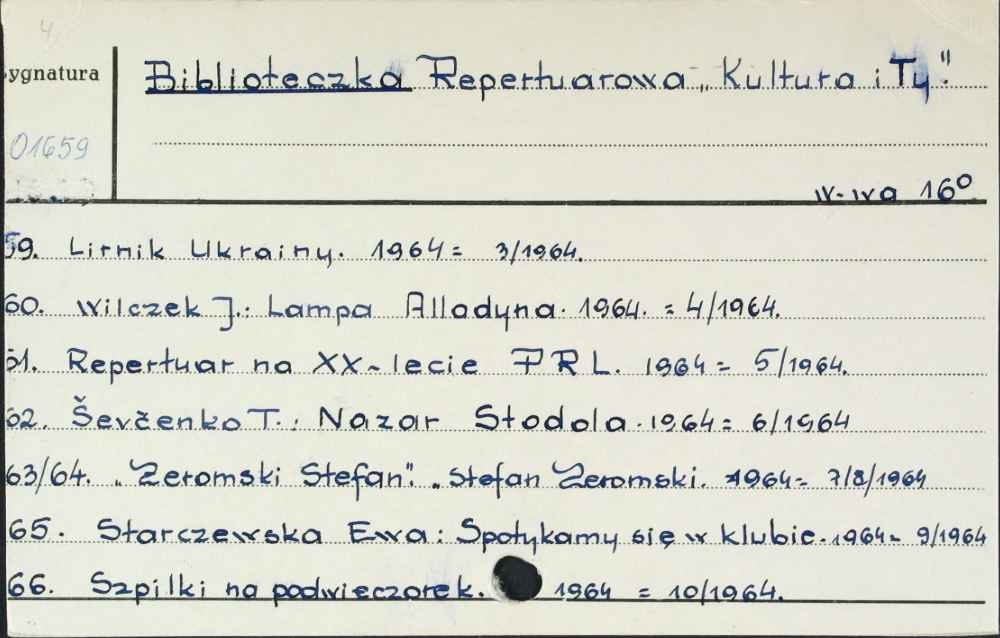 4.
ygnatura
Biblioteczka Repertuarowa „Kultura i Ty".
01659
W-wa 16°
59. Lirnik Ukrainy. 1964 = 3/1964.
60. Wilczek J.: Lampa Alladyna. 1964. = 4/1964.
61. Repertuar na XX-lecie PRL. 1964 = 5/1964.
62. Ševčenko T.: Nazar Stodola. 1964 = 6/1964
63/64. „Żeromski Stefan". „Stefan Żeromski. 1964 = 7/8/1964
65. Starczewska Ewa: Spotykamy się w klubie. 1964 = 9/1964
66. Szpilki na podwieczorek. 1964 = 10/1964.